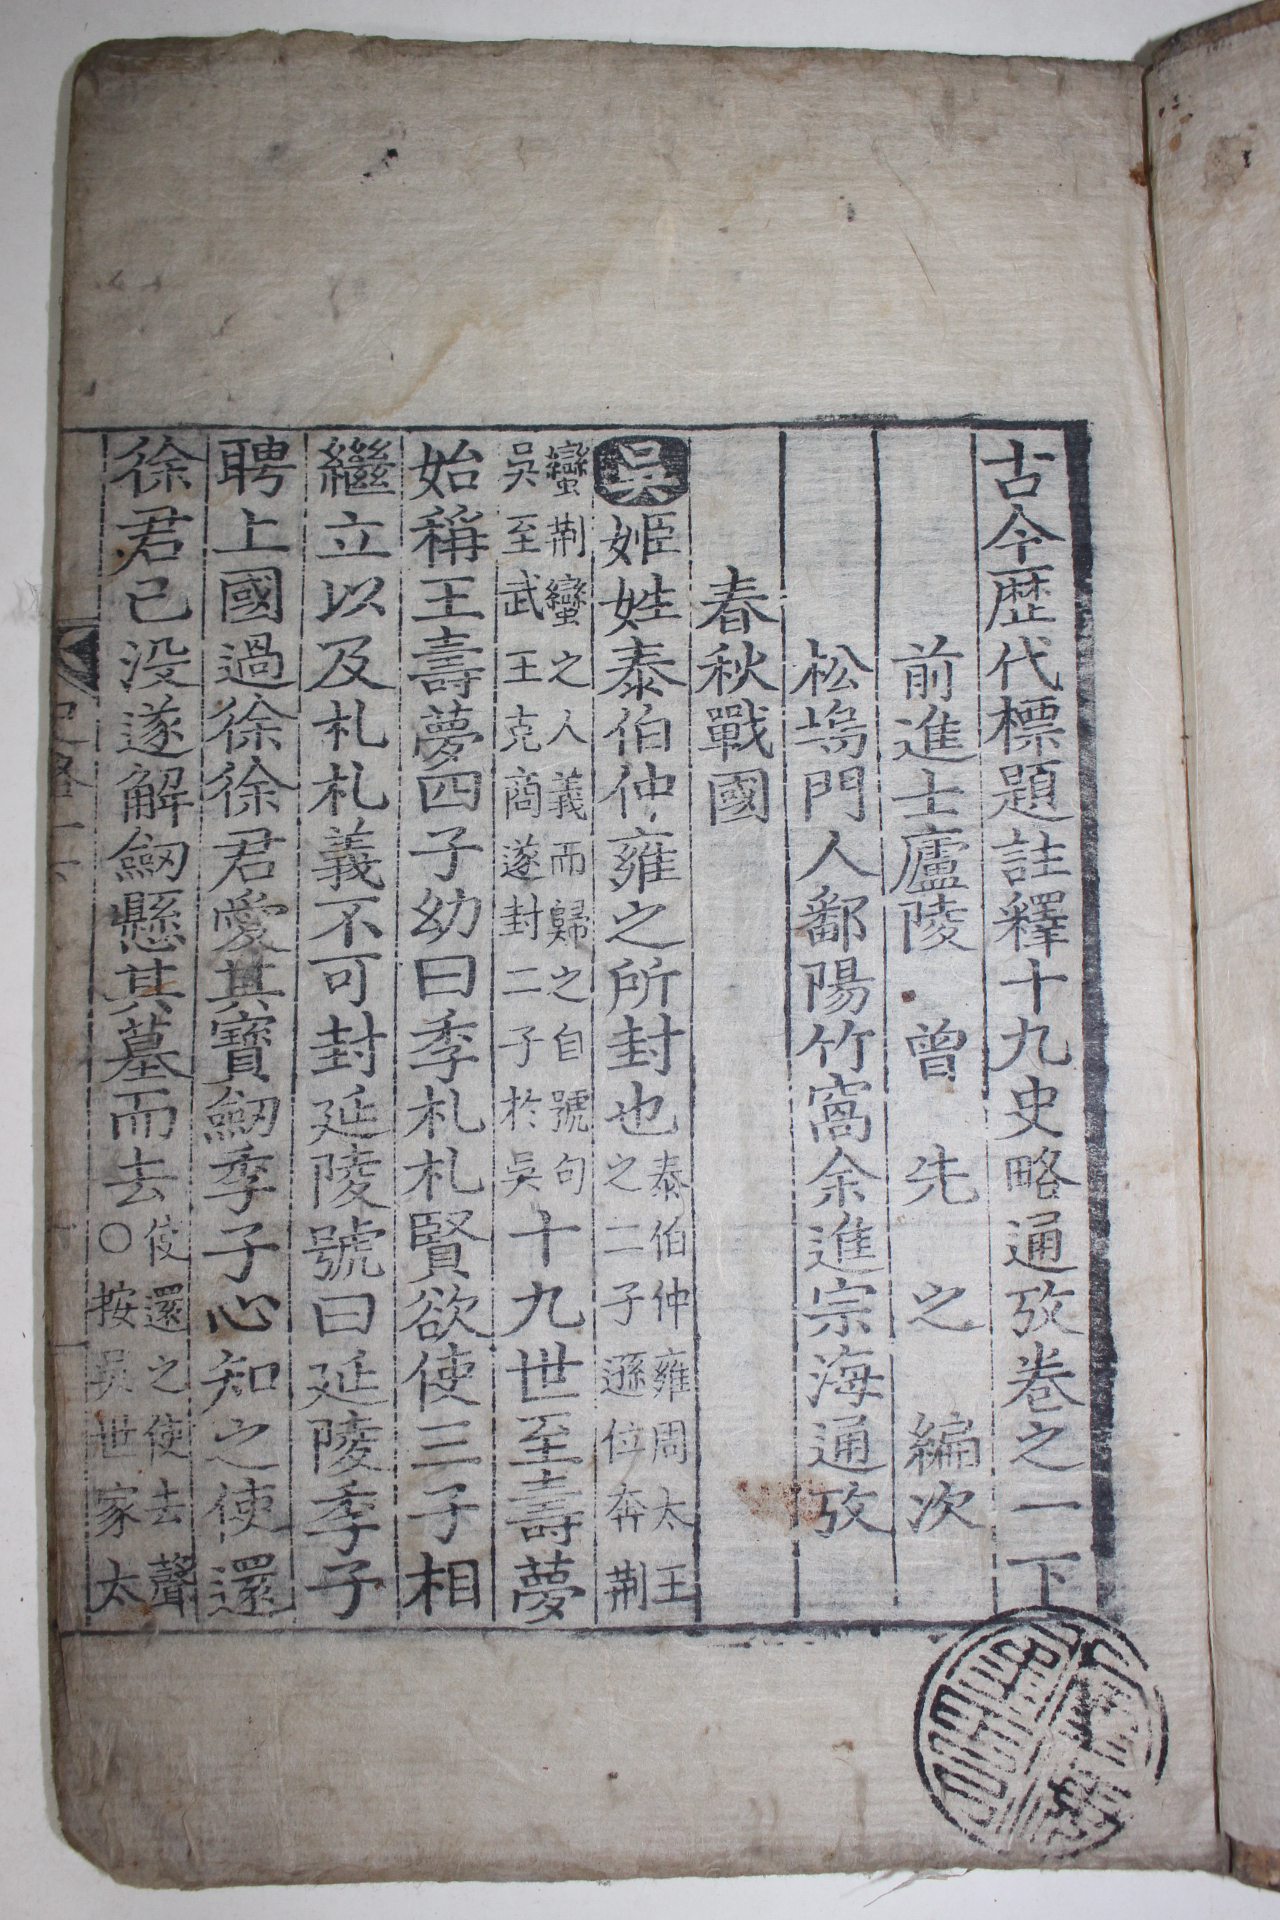 古今歴代標題註釋十九史略通攷卷之一下
前進士廬陵 曾 先 之 編次
松塢門人鄱陽竹窩余進宗海通攷
春秋戰國
吳姬姓泰伯仲雍之所封也泰伯仲雍周太王
之二子遜位奔荆
蠻荆蠻之人義而歸之自號句
吳至武王克商遂封二子於吳十九世至壽夢
始稱王壽夢四子幼曰季札札賢欲使三子相
繼立以及札札義不可封延陵號曰延陵季子
聘上國過徐徐君愛其寶劒季子心知之使還
徐君已没遂解劒懸其墓而去使還之使去聲
○按吳世家太